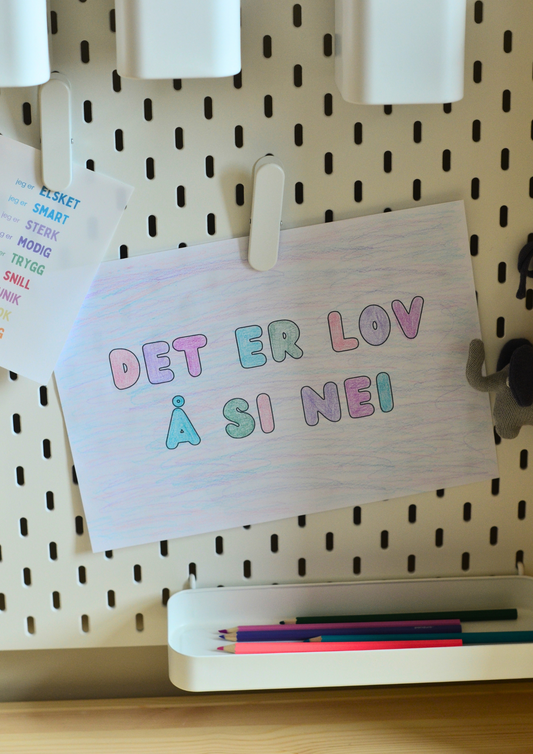 jeg er ELSKET
jeg er SMART
jeg er STERK
jeg er MODIG
er TRYGG
SNILL
UNIK
OK
G
DET ER LOV
Å SI NEI